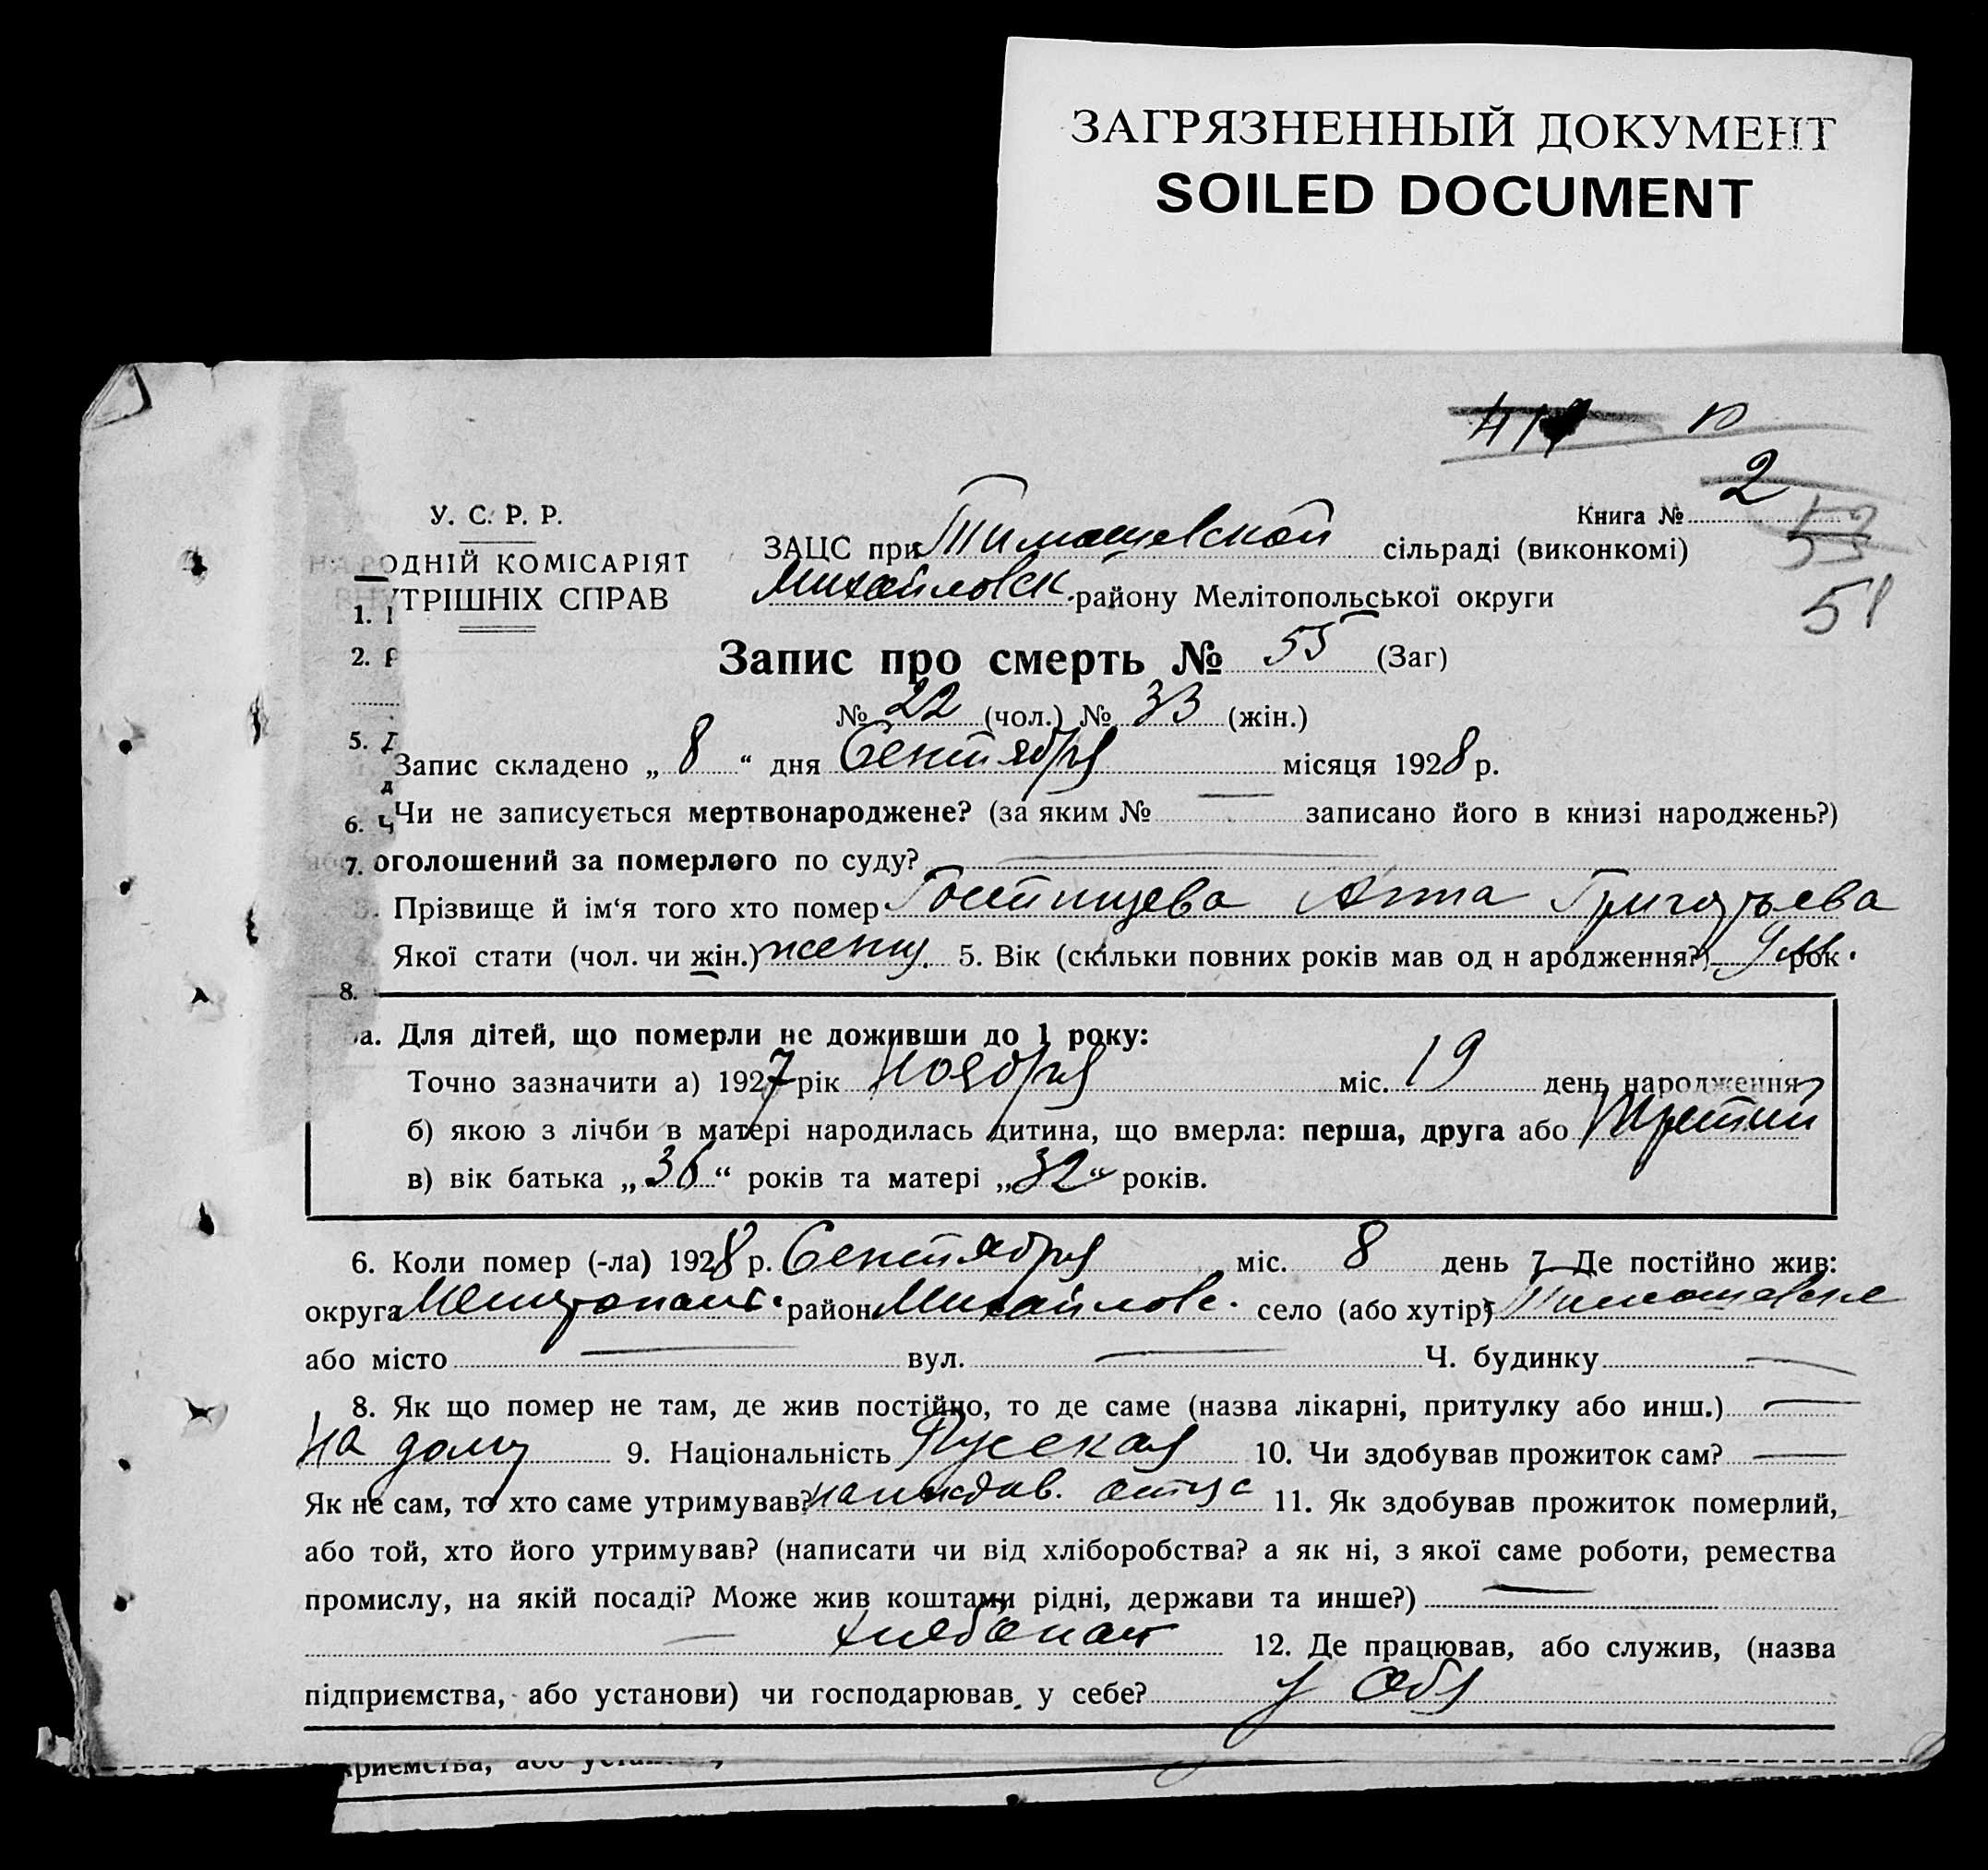 ЗАГРЯЗНЕННЫЙ ДОКУМЕНТ
SOILED DOCUMENT
У. С. Р. Р.
НАРОДНІЙ КОМІСАРІЯТ
ВНУТРІШНІХ СПРАВ
Книга № 2
53
51
ЗАЦС при Тимошевской сільраді (виконкомі)
Михайловск. району Мелітопольської округи
Запис про смерть № 55 (Заг)
№ 22 (чол.) № 33 (жін.)
Запис складено „ 8 “ дня Сентября місяця 1928 р.
Чи не записується мертвонароджене? (за яким № — записано його в книзі народжень?)
оголошений за померлого по суду? —
Прізвище й ім‘я того хто помер Гостищева Анна Григорьева
Якої стати (чол. чи жін.) женщ. 5. Вік (скільки повних років мав од н ародження?) 9 рок
а. Для дітей, що померли не доживши до 1 року:
Точно зазначити а) 1927 рік Ноября міс. 19 день народження
б) якою з лічби в матері народилась дитина, що вмерла: перша, друга або третий
в) вік батька „36“ років та матері „32“ років.
6. Коли помер (-ла) 1928 р. Сентября міс. 8 день 7. Де постійно жив:
округа район Михайловс. село (або хутір) Тимошевске
або місто — вул. — Ч. будинку —
8. Як що помер не там, де жив постійно, то де саме (назва лікарні, притулку або инш.) —
на дому 9. Національність Русская 10. Чи здобував прожиток сам? —
Як не сам, то хто саме утримував? на иждив. отца 11. Як здобував прожиток померлий,
або той, хто його утримував? (написати чи від хліборобства? а як ні, з якої саме роботи, ремества
промислу, на якій посаді? Може жив коштами рідні, держави та инше?) —
— хлебопаш 12. Де працював, або служив, (назва
підприємства, або установи) чи господарював у себе? у себя